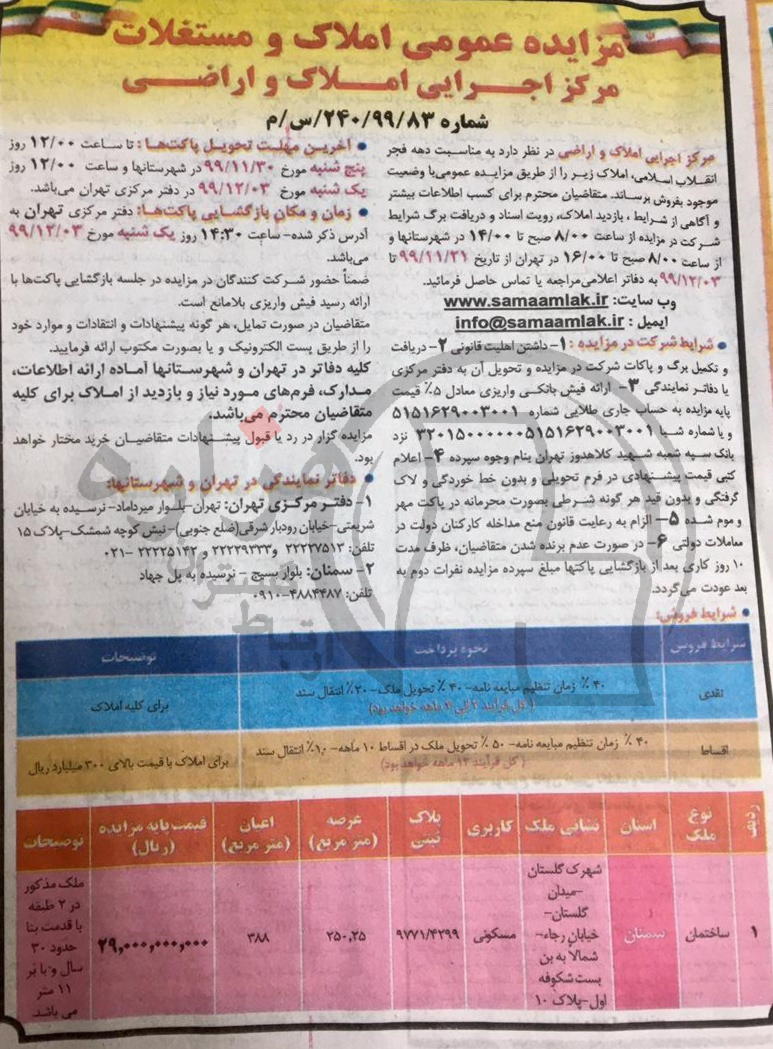 مزایده عمومی املاک و مستغلات
مرکز اجرایی املاک و اراضی
شماره ۲۴۰/۹۹/۸۳/س/م
مرکز اجرایی املاک و اراضی در نظر دارد به مناسبت دهه فجر
انقلاب اسلامی، املاک زیر را از طریق مزایده عمومی با وضعیت
موجود بفروش برساند. متقاضیان محترم برای کسب اطلاعات بیشتر
و آگاهی از شرایط ، بازدید املاک، رویت اسناد و دریافت برگ شرایط
شرکت در مزایده از ساعت ۸/۰۰ صبح تا ۱۴/۰۰ در شهرستانها و
از ساعت ۸/۰۰ صبح تا ۱۶/۰۰ در تهران از تاریخ ۹۹/۱۱/۲۱ تا
۹۹/۱۲/۰۳ به دفاتر اعلامی مراجعه یا تماس حاصل فرمائید.
وب سایت: www.samaamlak.ir
ایمیل : info@samaamlak.ir
● شرایط شرکت در مزایده : ۱- داشتن اهلیت قانونی ۲- دریافت
و تکمیل برگ و پاکات شرکت در مزایده و تحویل آن به دفتر مرکزی
یا دفاتر نمایندگی ۳- ارائه فیش بانکی واریزی معادل ۵٪ قیمت
پایه مزایده به حساب جاری طلایی شماره ۵۱۵۱۶۲۹۰۰۳۰۰۱
و یا شماره شبا ۳۲۰۱۵۰۰۰۰۰۰۰۵۱۵۱۶۲۹۰۰۳۰۰۱ نزد
بانک سپه شعبه شهید کلاهدوز تهران بنام وجوه سپرده ۴- اعلام
کتبی قیمت پیشنهادی در فرم تحویلی و بدون خط خوردگی و لاک
گرفتگی و بدون قید هر گونه شرطی بصورت محرمانه در پاکت مهر
و موم شده ۵- الزام به رعایت قانون منع مداخله کارکنان دولت در
معاملات دولتی ۶- در صورت عدم برنده شدن متقاضیان، ظرف مدت
۱۰ روز کاری بعد از بازگشایی پاکتها مبلغ سپرده مزایده نفرات دوم به
بعد عودت می‌گردد.
● آخرین مهلت تحویل پاکت‌ها : تا ساعت ۱۲/۰۰ روز
پنج شنبه مورخ ۹۹/۱۱/۳۰ در شهرستانها و ساعت ۱۲/۰۰ روز
یک شنبه مورخ ۹۹/۱۲/۰۳ در دفتر مرکزی تهران می‌باشد.
● زمان و مکان بازگشایی پاکت‌ها: دفتر مرکزی تهران به
آدرس ذکر شده- ساعت ۱۴:۳۰ روز یک شنبه مورخ ۹۹/۱۲/۰۳
می‌باشد.
ضمناً حضور شرکت کنندگان در مزایده در جلسه بازگشایی پاکت‌ها با
ارائه رسید فیش واریزی بلامانع است.
متقاضیان در صورت تمایل، هر گونه پیشنهادات و انتقادات و موارد خود
را از طریق پست الکترونیک و یا بصورت مکتوب ارائه فرمایید.
کلیه دفاتر در تهران و شهرستانها آماده ارائه اطلاعات،
مدارک، فرم‌های مورد نیاز و بازدید از املاک برای کلیه
متقاضیان محترم می‌باشد.
مزایده گزار در رد یا قبول پیشنهادات متقاضیان خرید مختار خواهد
بود.
● دفاتر نمایندگی در تهران و شهرستانها:
۱- دفتر مرکزی تهران: تهران-بلوار میرداماد- نرسیده به خیابان
شریعتی-خیابان رودبار شرقی(ضلع جنوبی)- نبش کوچه شمشک-پلاک ۱۵
تلفن: ۲۲۲۲۷۵۱۳ و ۲۲۲۲۹۳۳۳ و ۲۲۲۲۵۱۴۲ -۰۲۱
۲- سمنان: بلوار بسیج - نرسیده به پل جهاد
تلفن: ۴۸۸۴۴۸۷-۰۹۱۰
● شرایط فروش:
شرایط فروش نحوه پرداخت توضیحات
نقدی ۴۰٪ زمان تنظیم مبایعه نامه- ۴۰٪ تحویل ملک- ۲۰٪ انتقال سند برای کلیه املاک
( کل فرآیند ۲ الی ۳ ماهه خواهد بود)
اقساط ۴۰٪ زمان تنظیم مبایعه نامه- ۵۰٪ تحویل ملک در اقساط ۱۰ ماهه- ۱۰٪ انتقال سند برای املاک با قیمت بالای ۳۰۰ میلیارد ریال
( کل فرآیند ۱۲ ماهه خواهد بود)
ردیف نوع ملک استان نشانی ملک کاربری پلاک ثبتی عرصه (متر مربع) اعیان (متر مربع) قیمت پایه مزایده (ریال) توضیحات
۱ ساختمان سمنان شهرک گلستان -میدان گلستان- خیابان رجاء- شمالا به بن بست شکوفه اول-پلاک ۱۰ مسکونی ۹۷۷۱/۴۲۹۹ ۲۵۰,۲۵ ۳۸۸ ۲۹,۰۰۰,۰۰۰,۰۰۰ ملک مذکور در ۲ طبقه با قدمت بنا حدود ۳۰ سال و با بَر ۱۱ متر می باشد.
هزاره
ارتباط